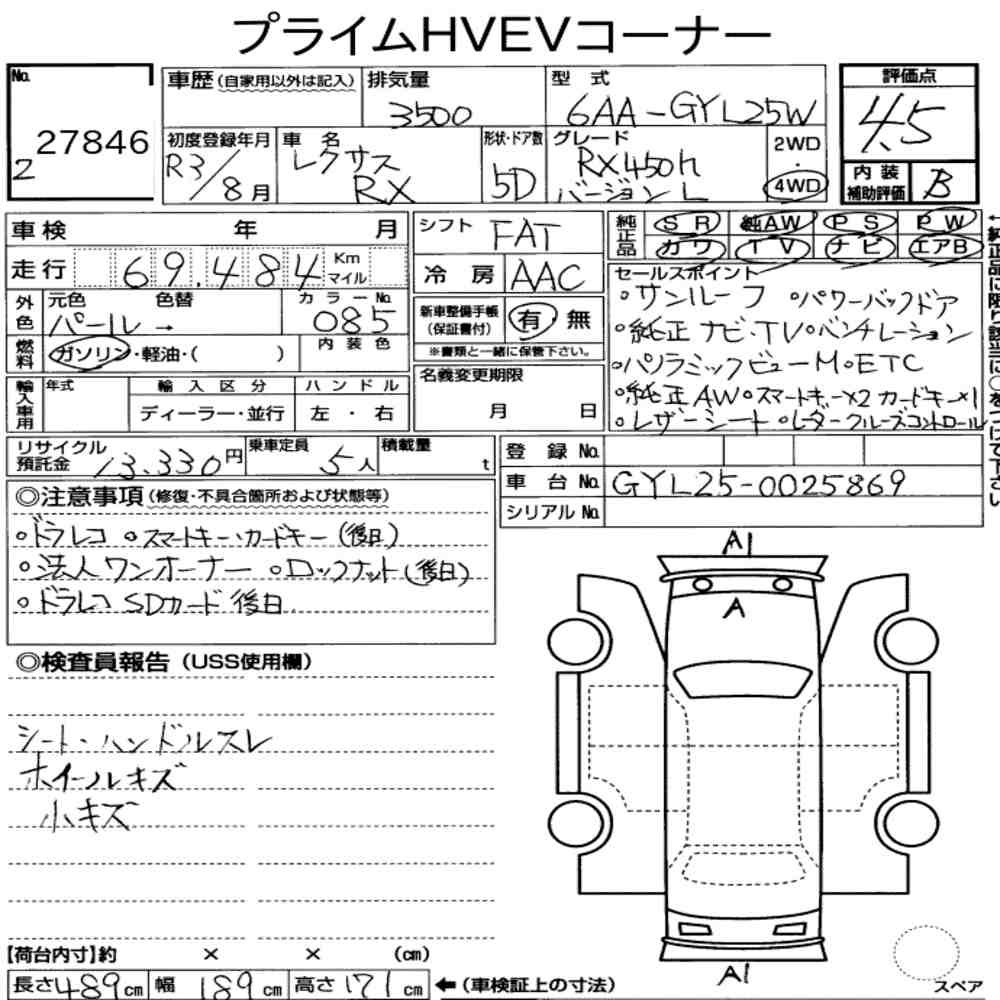 プライムHVEVコーナー
No. 27846
2
車歴(自家用以外は記入) 排気量 3500 型式 6AA-GYL25W 評価点 4.5
初度登録年月 R3/8月 車名 レクサス RX 形状・ドア数 5D グレード RX450h バージョンL 2WD・4WD 内装補助評価 B
車検 年 月 シフト FAT 純正品 SR 純AW PS PW
カワ TV ナビ エアB
走行 69,484 Km マイル 冷房 AAC
セールスポイント
外色 元色 パール→ 色替 カラーNo. 085
新車整備手帳(保証書付) 有 無
※書類と一緒に保管下さい。
燃料 ガソリン・軽油・( ) 内装色
。サンルーフ 。パワーバックドア
。純正ナビ・TV。ベンチレーション
。パノラミックビューM。ETC
。純正AW。スマートキー×2 カードキー×1
。レザーシート 。レーダークルーズコントロール
輸入車用 年式 輸入区分 ディーラー・並行 ハンドル 左・右
名義変更期限 月 日
リサイクル預託金 13,330円 乗車定員 5人 積載量 t
登録No.
車台No. GYL25-0025869
シリアルNo.
◎注意事項(修復・不具合箇所および状態等)
。ドラレコ 。スマートキー・カードキー(後日)
。法人ワンオーナー 。ロックナット(後日)
。ドラレコSDカード後日
◎検査員報告(USS使用欄)
シート・ハンドルスレ
ホイールキズ
小キズ
A1
A
A1
【荷台内寸】約 × × (cm)
長さ489cm 幅189cm 高さ171cm ←(車検証上の寸法)
スペア